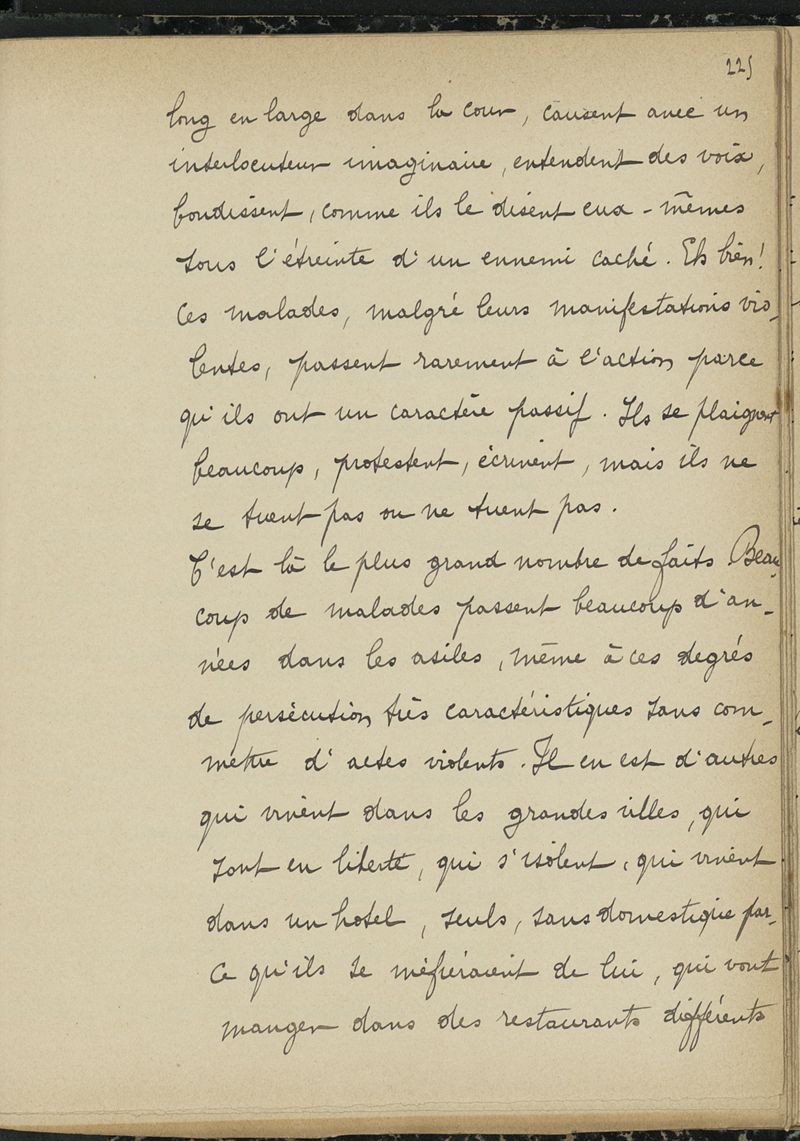 225
long en large dans la cour, causent avec un
interlocuteur imaginaire, entendent des voix,
bondissent, comme ils le disent eux-mêmes
sous l'étreinte d'un ennemi caché. Eh bien!
Ces malades, malgré leurs manifestations vio-
lentes, passent rarement à l'action parce
qu'ils ont un caractère passif. Ils se plaignent
beaucoup, protestent, écrivent, mais ils ne
se tuent pas ou ne tuent pas.
C'est là le plus grand nombre de faits Beau-
coup de malades passent beaucoup d'an-
nées dans les asiles, même à ces degrés
de persécution très caractéristiques sans com-
mettre d'actes violents. Il en est d'autres
qui vivent dans les grandes villes, qui
sont en liberté, qui s'isolent, qui vivent
dans un hotel, seuls, sans domestique par-
ce qu'ils se méfieraient de lui, qui vont
manger dans des restaurants différents